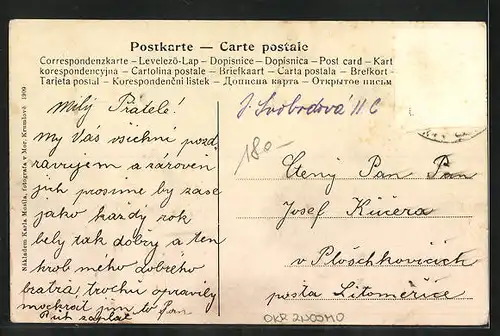 Postkarte — Carte postale
Correspondenzkarte – Levelező-Lap – Dopisnice – Dopisnica – Post card – Kart
korespondencyjna – Cartolina postale – Briefkaart – Carta postala – Brefkort –
Tarjeta postal – Korespondenční listek – Дописна карта – Открытое письм
Nákladem Karla Mosila, fotografa v Mor. Krumlově 1909
Milý Přátelé!
My Vás všichni pozd
ravujem a zároveň
jich prosíme by zase
jako každý rok
bely tak dobrý a ten
hrob mého dobrého
bratra, trochu opravily
mockrát jim to Pan
Bůh zaplať
J. Svobodová 11 C
180–
Ctený Pan Pan
Josef Kučera
v Ploschkovicích
pošta Litoměřice
OKR ZNOJMO